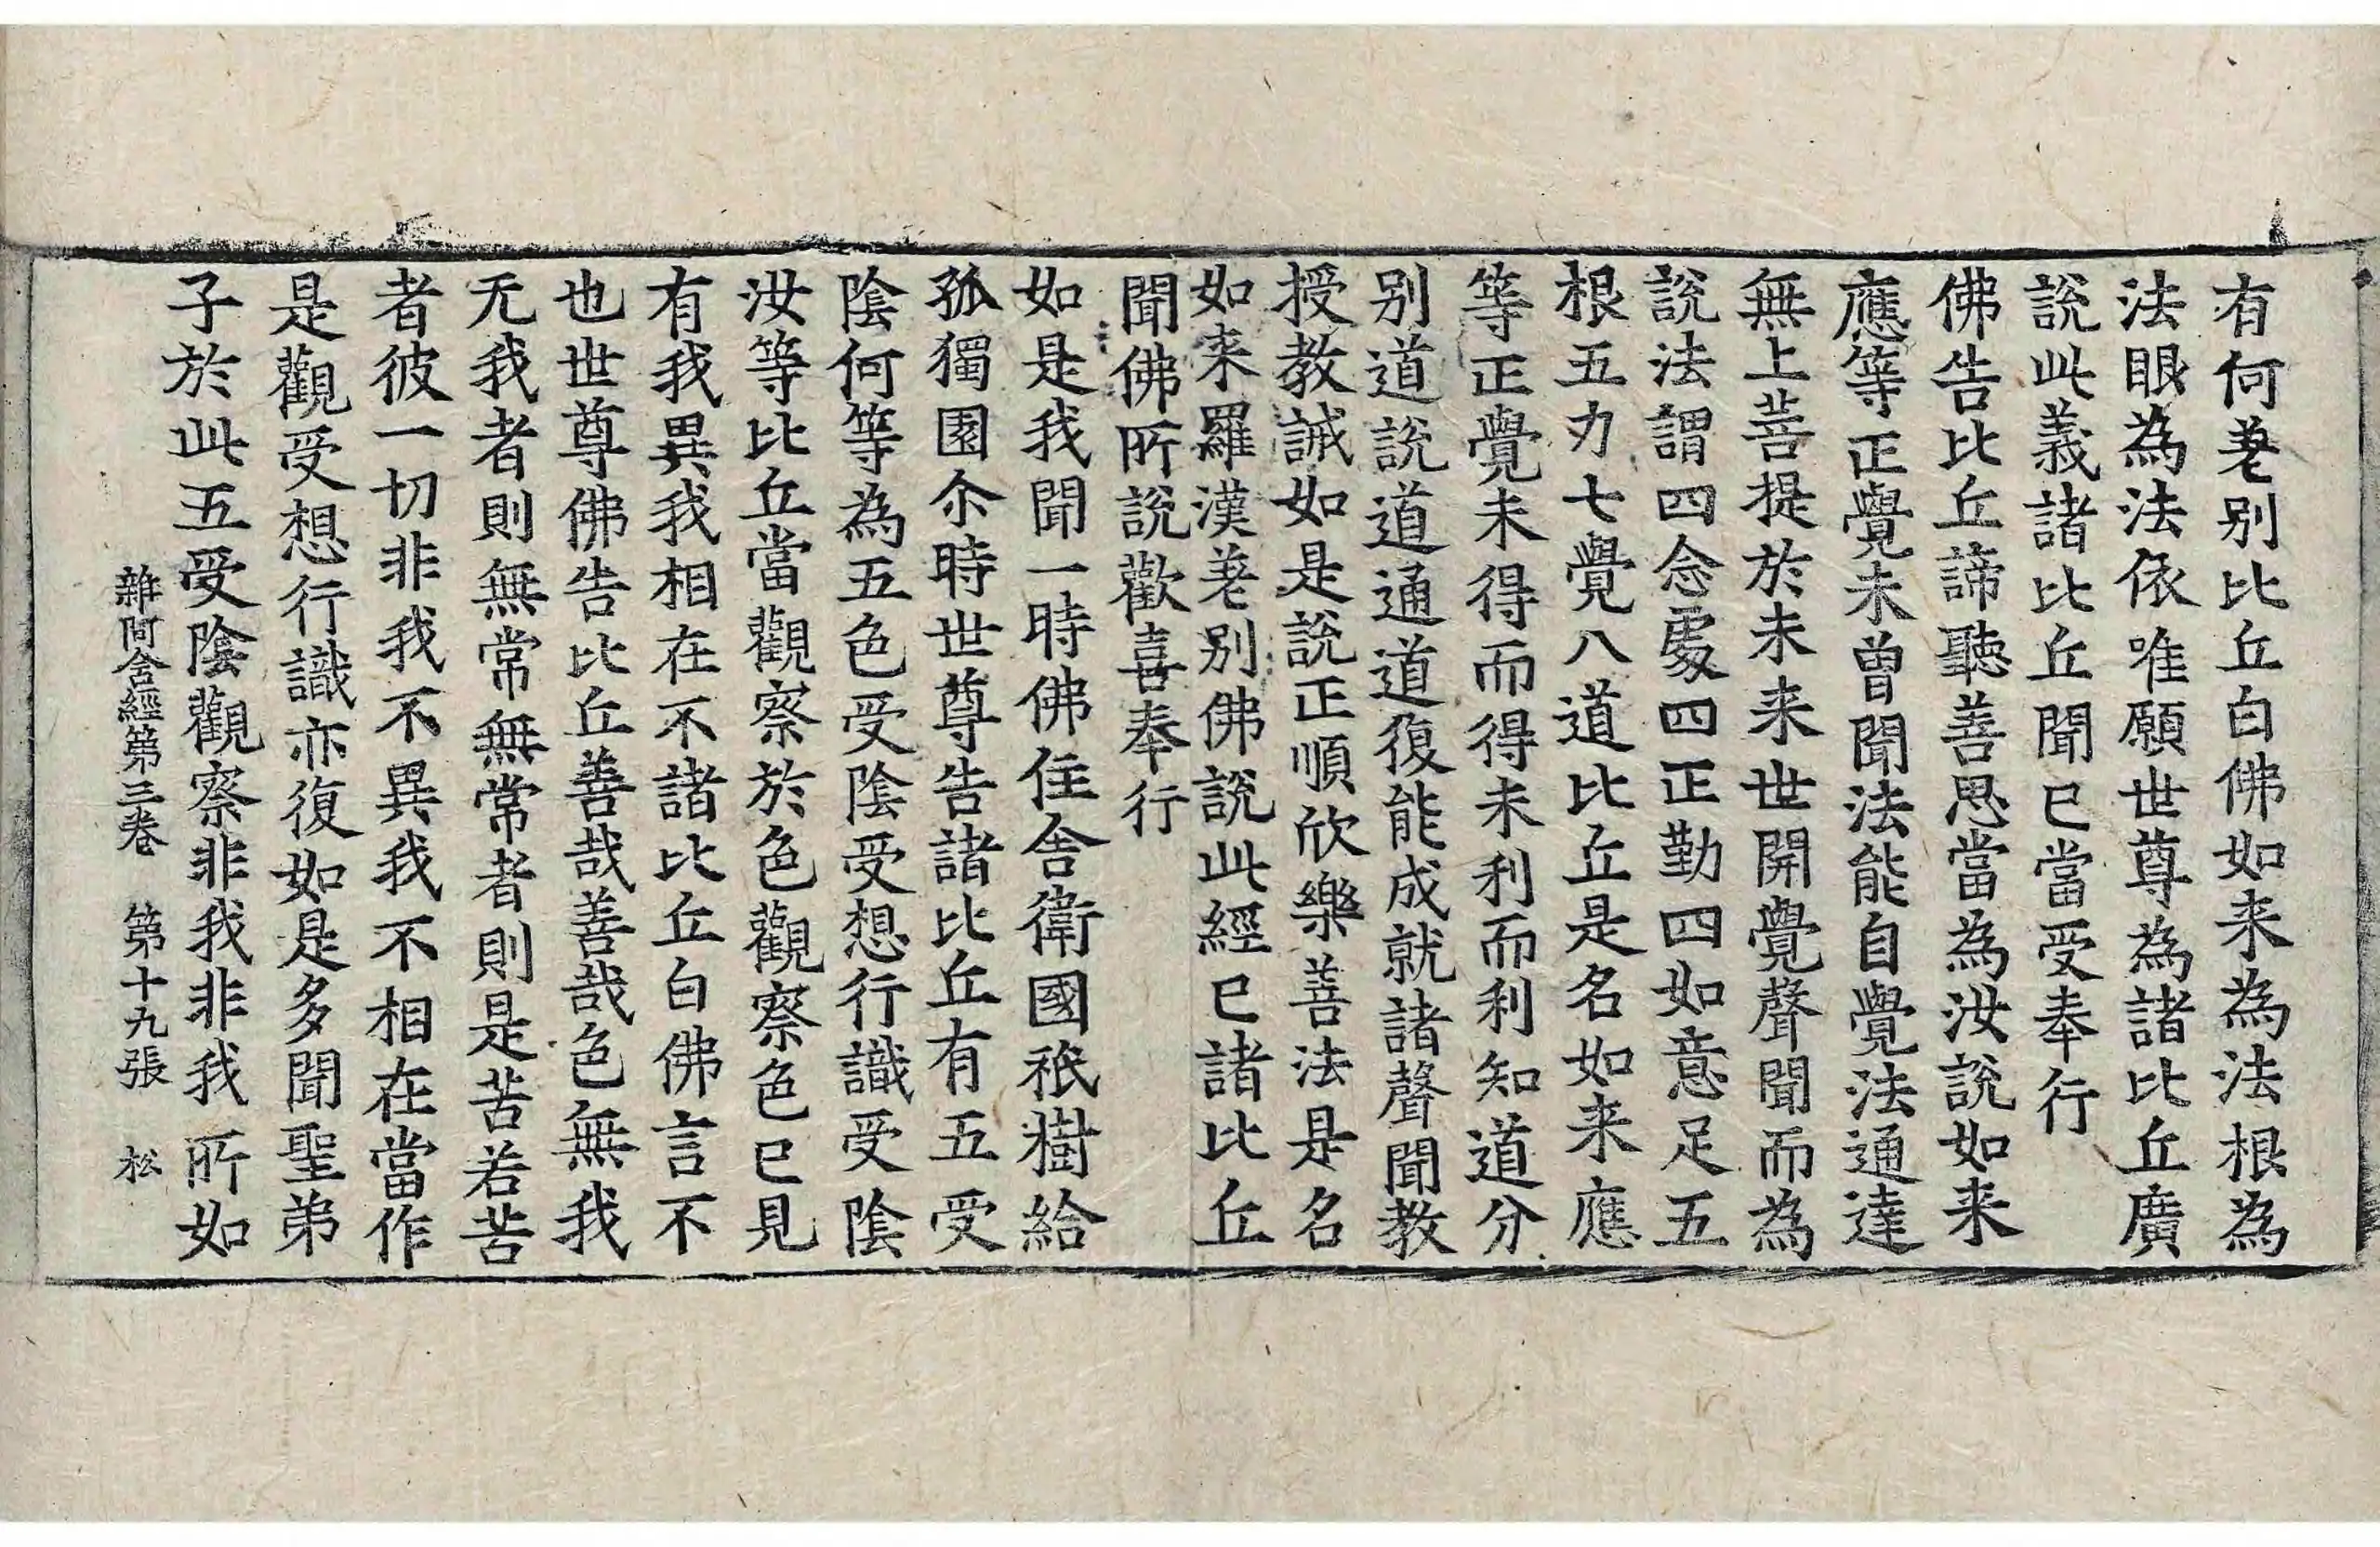 有何差别比丘白佛如来為法根為
法眼為法依唯願世尊為諸比丘廣
說此義諸比丘聞已當受奉行
佛告比丘諦聽善思當為汝說如来
應等正覺未曾聞法能自覺法通達
無上菩提於未来世開覺聲聞而為
說法謂四念處四正勤四如意足五
根五力七覺八道比丘是名如来應
等正覺未得而得未利而利知道分
别道說道通道復能成就諸聲聞教
授教誡如是說正順欣樂善法是名
如来羅漢差别佛說此經已諸比丘
聞佛所說歡喜奉行
如是我聞一時佛住舍衛國祇樹給
孤獨園尒時世尊告諸比丘有五受
陰何等為五色受陰受想行識受陰
汝等比丘當觀察於色觀察色已見
有我異我相在不諸比丘白佛言不
也世尊佛告比丘善哉善哉色無我
无我者則無常無常者則是苦若苦
者彼一切非我不異我不相在當作
是觀受想行識亦復如是多聞聖弟
子於此五受陰觀察非我非我所如
雜阿含經第三卷　第十九張　松